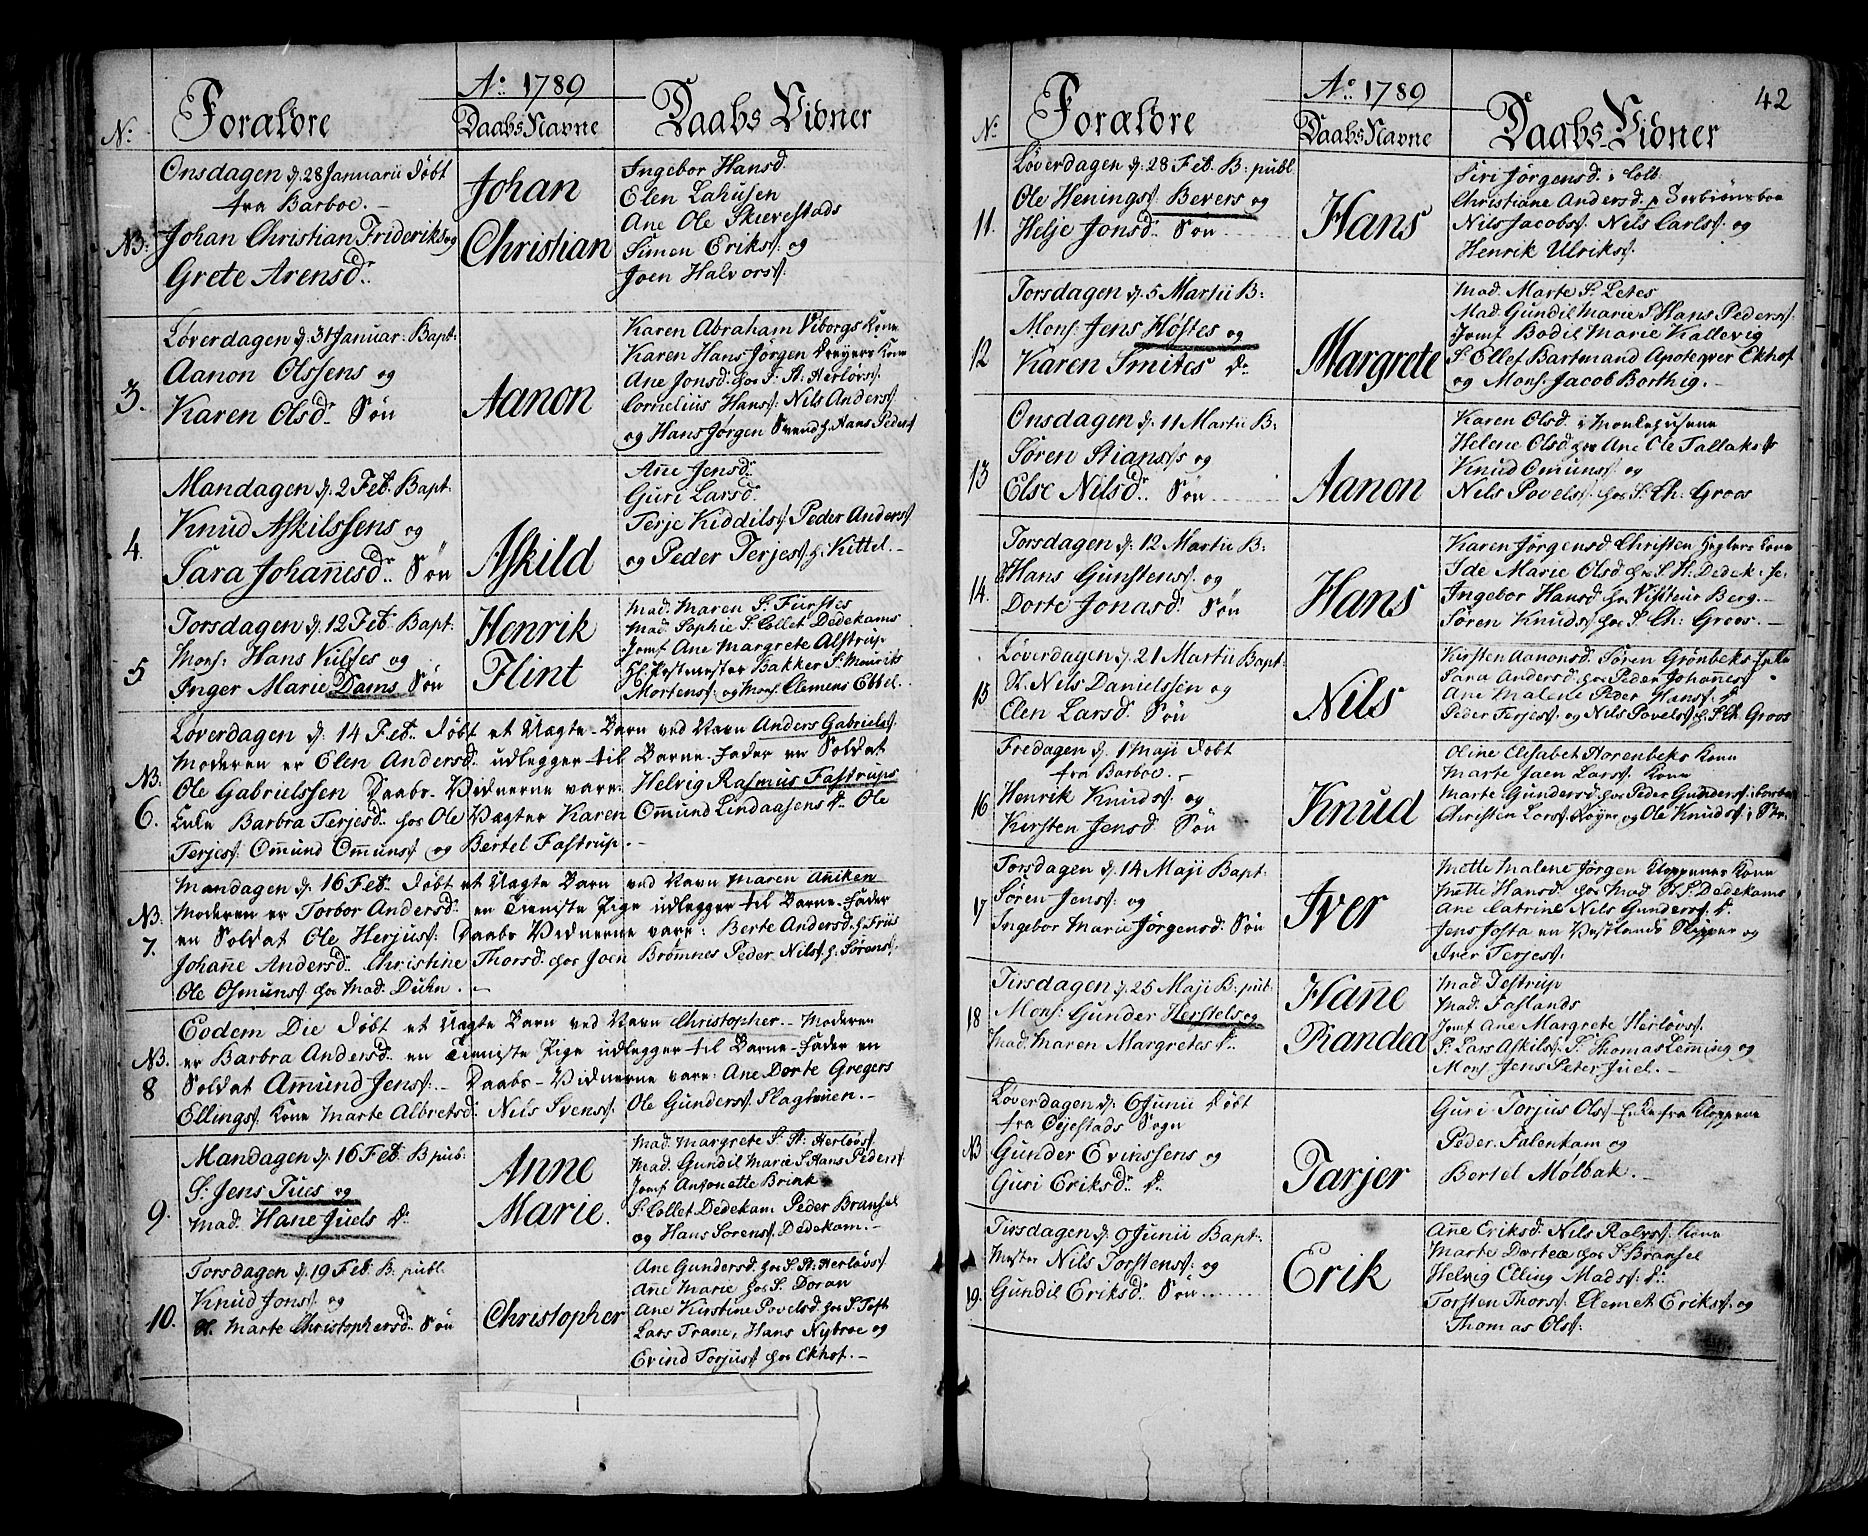 Ao. 1789
No. Forældre Daabs Navne Daabs Vidner
Onsdagen d. 28 Januarii døbt
fra Barboe. -
NB. Johan Christian Frideriks og
Grete Arensd.
Johan
Christian
Ingebor Hansd.
Elen Lahusen
Ane Ole Skierestads
Simen Erikss. og
Joen Halvorss.
Løverdagen d. 31 Januar: Bapt:
3. Aanon Olssens og
Karen Olsd. Søn
Aanon
Karen Abraham Viborgs Kone
Karen Hans Jørgen Dreyers Kone
Ane Jonsd. hos S. St. Herløvs.
Cornelius Hanss. Nils Anderss.
og Hans Jørgen Svend h. Hans Peders
Mandagen d. 2 Feb. Bapt:
4. Knud Askilssens og
Sara Johannesd. Søn
Askild
Anne Jensd.
Guri Larsd.
Terje Kiddilss. Peder Anderss.
og Peder Terjess. h. Kittel. -
Torsdagen d. 12 Feb. Bapt:
Mons: Hans og
5 Inger Marie Dams Søn
Henrik
Flint
Mad. Maren S. Furstes
Mad. Sophie S. Collet Dedekams
Jomf. Ane Margrete Alstrup
Hr. Postmester Bakker S. Mourits
Mortenss. og Mons. Clemens Ebbel.
Løverdagen d. 14 Feb. døbt et Uægte Barn ved Navn Anders Gabrielss.
Moderen er Elen Andersd. udlegger til Barne-Fader en Soldat
NB. Ole Gabrielssen Daabs-Vidnerne vare: Helvig Rasmus Fastrups
6. Enke Barbra Terjesd. hos Ole Vægter Karen Ommund Lindaasens D. Ole
Terjess. Ommund Ommunss. og Bertel Fastrup. -
Mandagen d. 16 Feb. døbt et Uægte Barn ved Navn Maren Aniken
NB. Moderen er Torbor Andersd. en Tieniste Pige udlegger til Barne-Fader
7. en Soldat Ole Herjuss. Daabs Vidnerne vare: Berte Andersd. h. Friis
Johanne Andersd. Christine Thorsd. hos Joen Bromnes Peder Nilss. h. Sørenss.
Ole Osmunss. hos Mad. Duhn. -
Eodem Die døbt et Uægte Barn ved Navn Christopher. - Moderen
NB. er Barbra Andersd. en Tieniste Pige udlegger til Barne-Fader en
8 Soldat Amund Jenss. - Daabs-Vidnerne vare: Ane Dorte Gregers
Ellingss. Kone Marte Albretsd. Nils Svenss. Ole Gunderss. Slagtøien. -
Mandagen d. 16 Feb. B. pub:
9. S. Jens Tues og
Mad. Hane Juels D.
Anne
Marie.
Mad. Margrete S. St. Herløvs.
Mad. Gundil Marie S. Hans Peders
Jomf. Antonette Brink
S. Collet Dedekam Peder Bransel
og Hans Sørenss. Dedekam. -
Torsdagen d. 19 Feb. B. publ.
Knud Jonss. og
10. Marte Christophersd. Søn
Christopher
Ane Gundersd. hos S. St. Herløvs.
Ane Marie hos S. Doran
Ane Kirstine Povelsd. hos S. Toft
Lars Trane, Hans Nybroe og
Evind Torjuss. hos Ekhof. -
42
Ao. 1789
No. Forældre Daabs Navne Daabs-Vidner
Løverdagen d. 28 Feb. B. publ
Ole Heningss. Bevers og
11. Helje Jonsd. Søn
Hans
Siri Jørgensd. i Colb.
Christiane Andersd. p
Nils Jacobss. Nils Carlss. og
Henrik Ulrikss.
Torsdagen d. 5 Martii B:
Mons. Jens Høstes og
12 Karen Smites D.
Margrete
Mad. Marte S. Letes
Mad. Gundil Marie S. Hans Pederss.
Jomf. Bodil Marie Kallevig
S. Ellef Bartmand Apoteqver Ekhof
og Mons. Jacob Borthig. -
Onsdagen d. 11 Martii B:
13 Søren Stianss og
Else Nilsd. Søn
Aanon
Karen Olsd. i Munkehusene
Helene Olsd. hos Ane Ole Tallaks
Knud Omunss. og
Nils Povelss. hos S. Ch: Groos
Torsdagen d. 12 Martii B:
14. Hans Gunstenss. og
Dorte Jonasd. Søn
Hans
Karen Jørgensd. Christen Kone
Ide Marie Olsd. hos S. H. Dedek.
Ingebor Hansd. hos Visiteur Berg. -
Søren Knudss. hos S. Ch: Groos. -
Løverdagen d. 21 Martii Bapt:
15 Nils Danielssen og
Elen Larsd. Søn
Nils
Kirsten Aanonsd. Søren Grønbeks Enke
Sara Andersd. hos Peder Johanness.
Ane Malene Peder Hanss. D.
Peder Terjess. og Nils Povelss. h. S. Ch. Groos
Fredagen d. 1 Maji døbt
fra Barboe. -
16 Henrik Knudss. og
Kirsten Jensd. Søn
Knud
Oline Elisabet Horenbeks Kone
Marte Jaen Larss. Kone
Marte Gundersd. hos Peder Gunderss.
Christen Larss. og Ole Knudss.
Torsdagen d. 14 Maji Bapt:
17 Søren Jenss. og
Ingebor Marie Jørgensd. Søn
Iver
Mette Malene Jørgen Kloppenes Kone
Mette Hansd. hos Mad. St. S. Dedekams
Ane Catrine Nils Gunderss. D.
Jens Josta en Vestlands Skipper og
Iver Terjess.
Tirsdagen d. 25 Maji B. pub:
18 Mons. Gunder Herstels og
Mad. Maren Margretes D.
Hanne
Randea
Mad. Testrup
Mad. Faslands
Jomf. Ane Margrete Herløvs.
S. Lars Askilss. S. Thomas Lemming og
Mons. Jens Peter Juel. -
Løverdagen d. 6 Junii Døbt
fra Øjestads Sogn
NB Gunder Evinssens og
Guri Eriksd. D.
Tarjer
Guri Torjus Olss. Enke fra Kloppene
Peder Falenkam og
Bertel Molbak. -
Tirsdagen d. 9 Junii Bapt:
Mester Nils Torstenss. og
19. Gundil Eriksd. Søn
Erik
Anne Eriksd. Nils Rolvss. Kone
Marte Dortea hos S. Bransel
Helvig Elling Madss. D.
Torsten Thorss. Clemet Erikss. og
Thomas Olss.